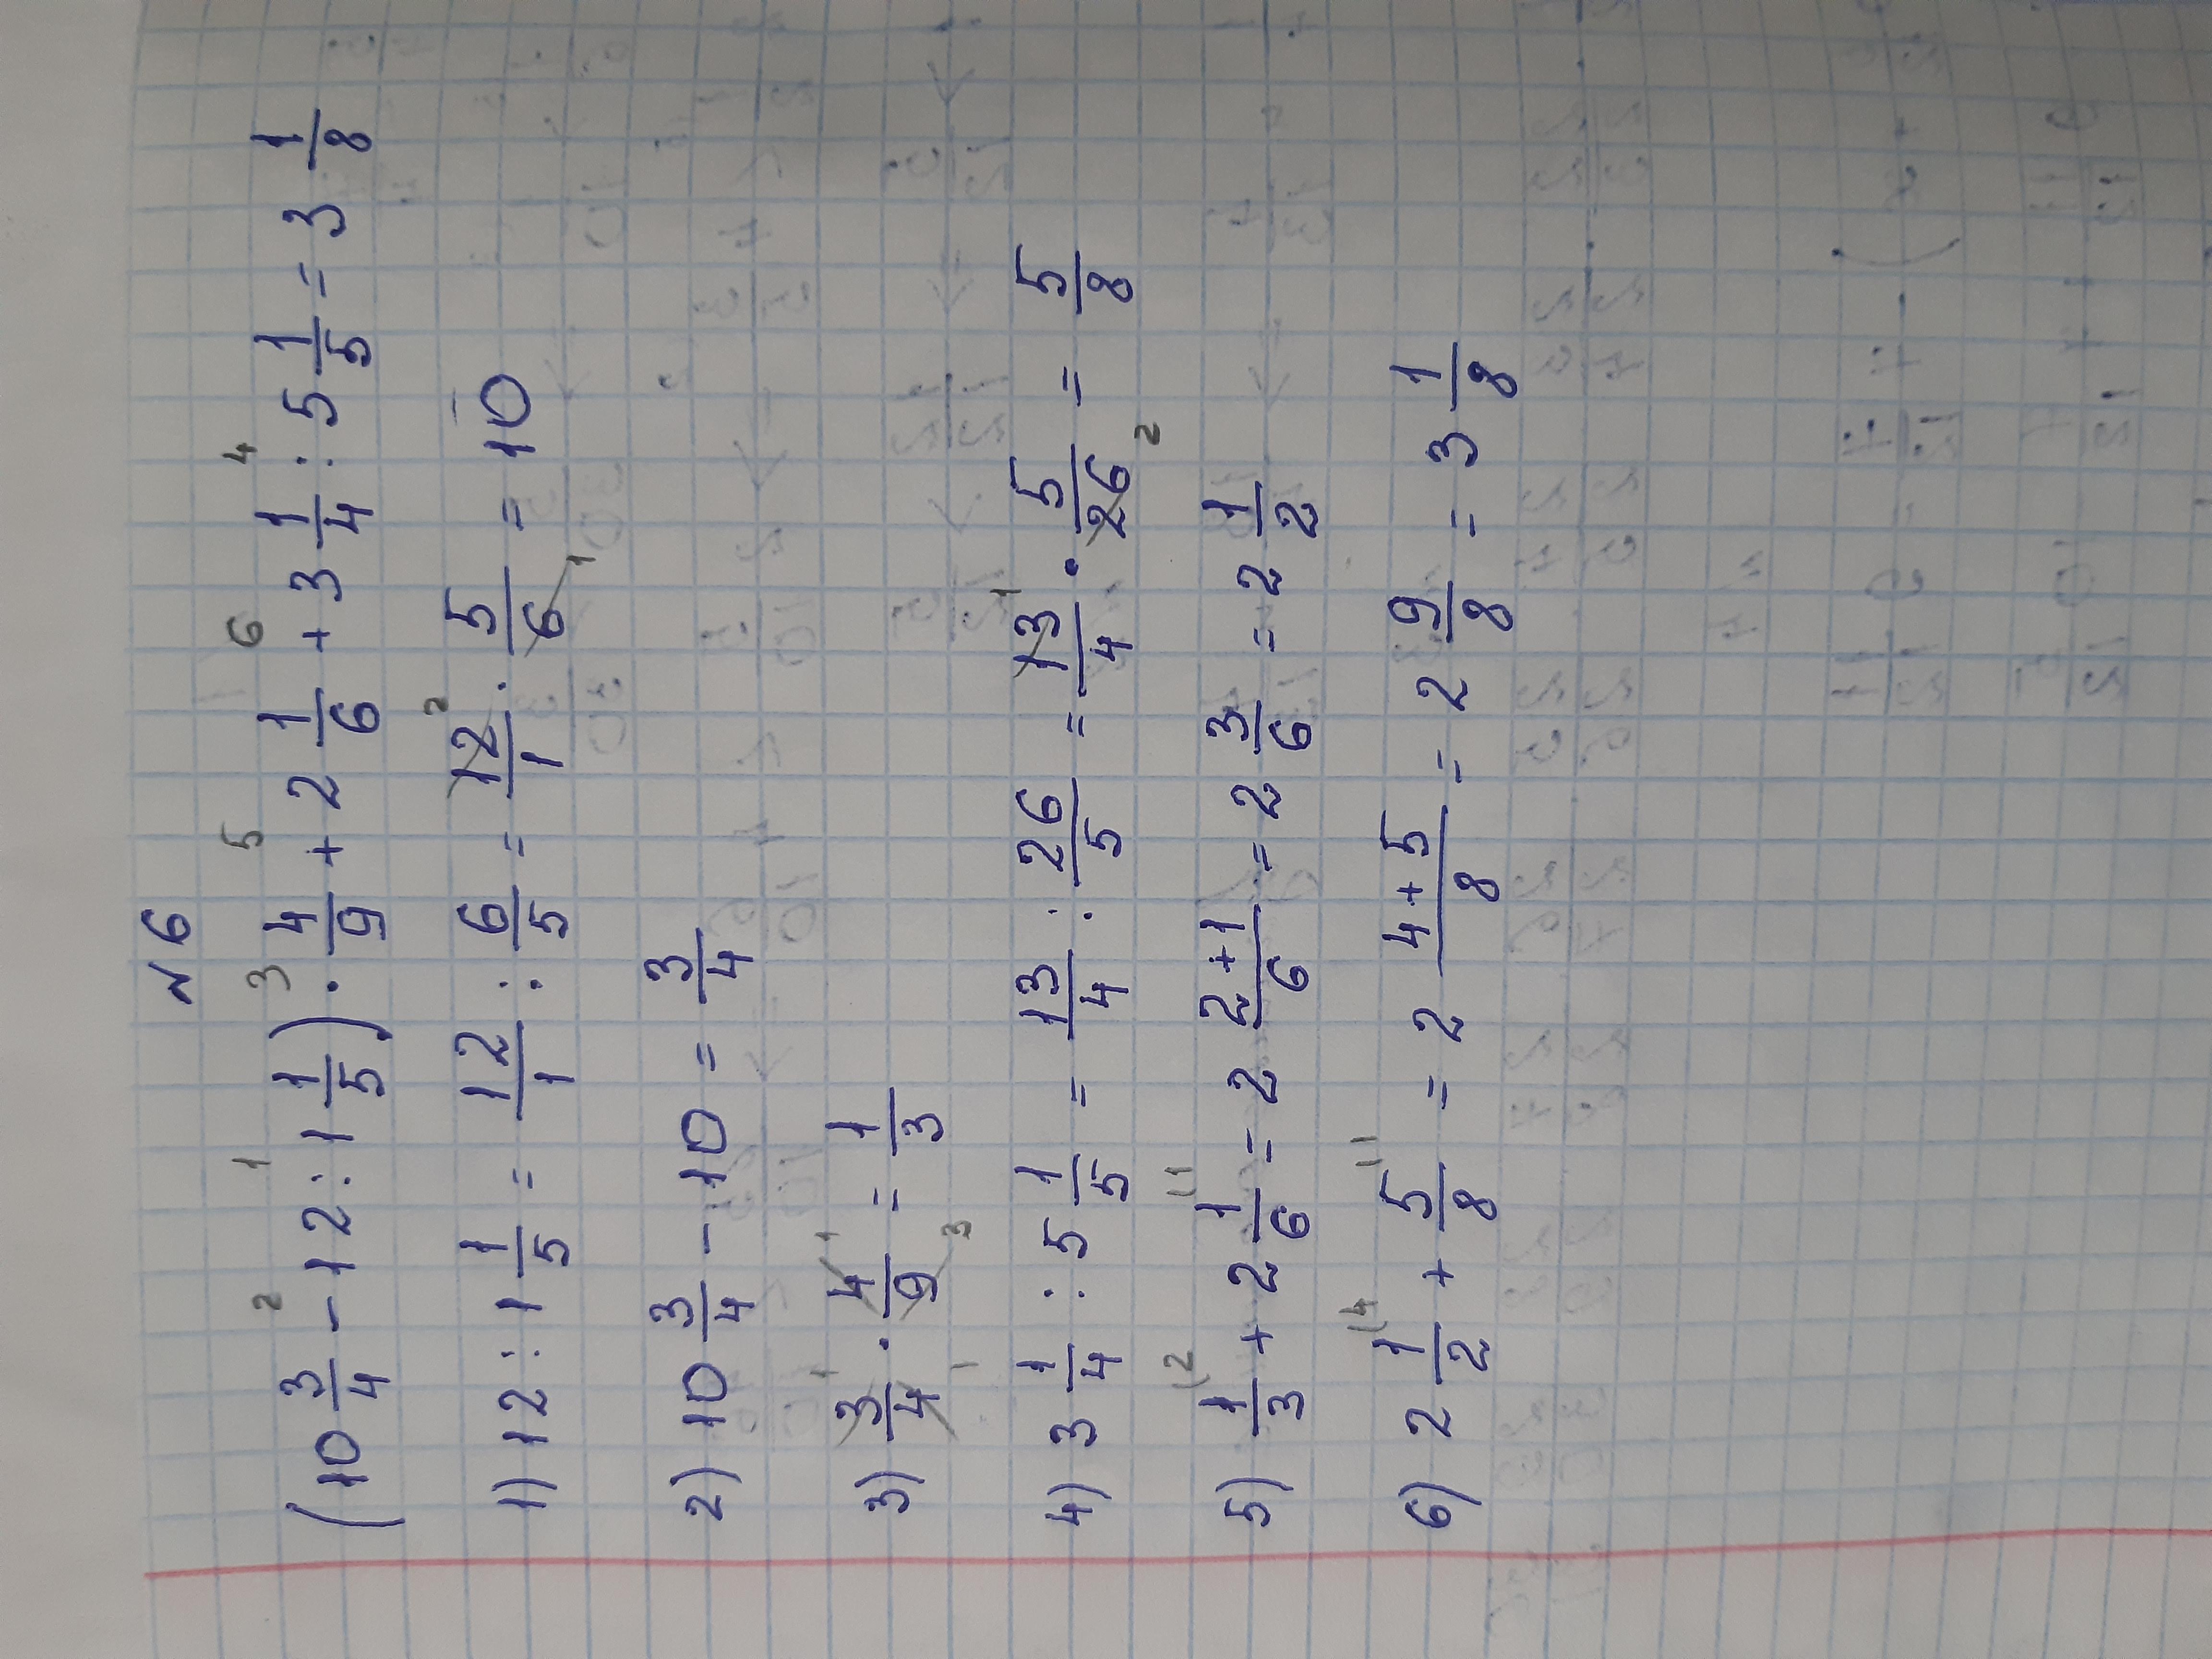 № 6
(10 3/4 - 12 : 1 1/5) · 4/9 + 2 1/6 + 3 1/4 : 5 1/5 = 3 1/8
1) 12 : 1 1/5 = 12/1 : 6/5 = 12/1 · 5/6 = 10
2) 10 3/4 - 10 = 3/4
3) 3/4 · 4/9 = 1/3
4) 3 1/4 : 5 1/5 = 13/4 : 26/5 = 13/4 · 5/26 = 5/8
5) 1/3 + 2 1/6 = 2 2+1/6 = 2 3/6 = 2 1/2
6) 2 1/2 + 5/8 = 2 4+5/8 = 2 9/8 = 3 1/8